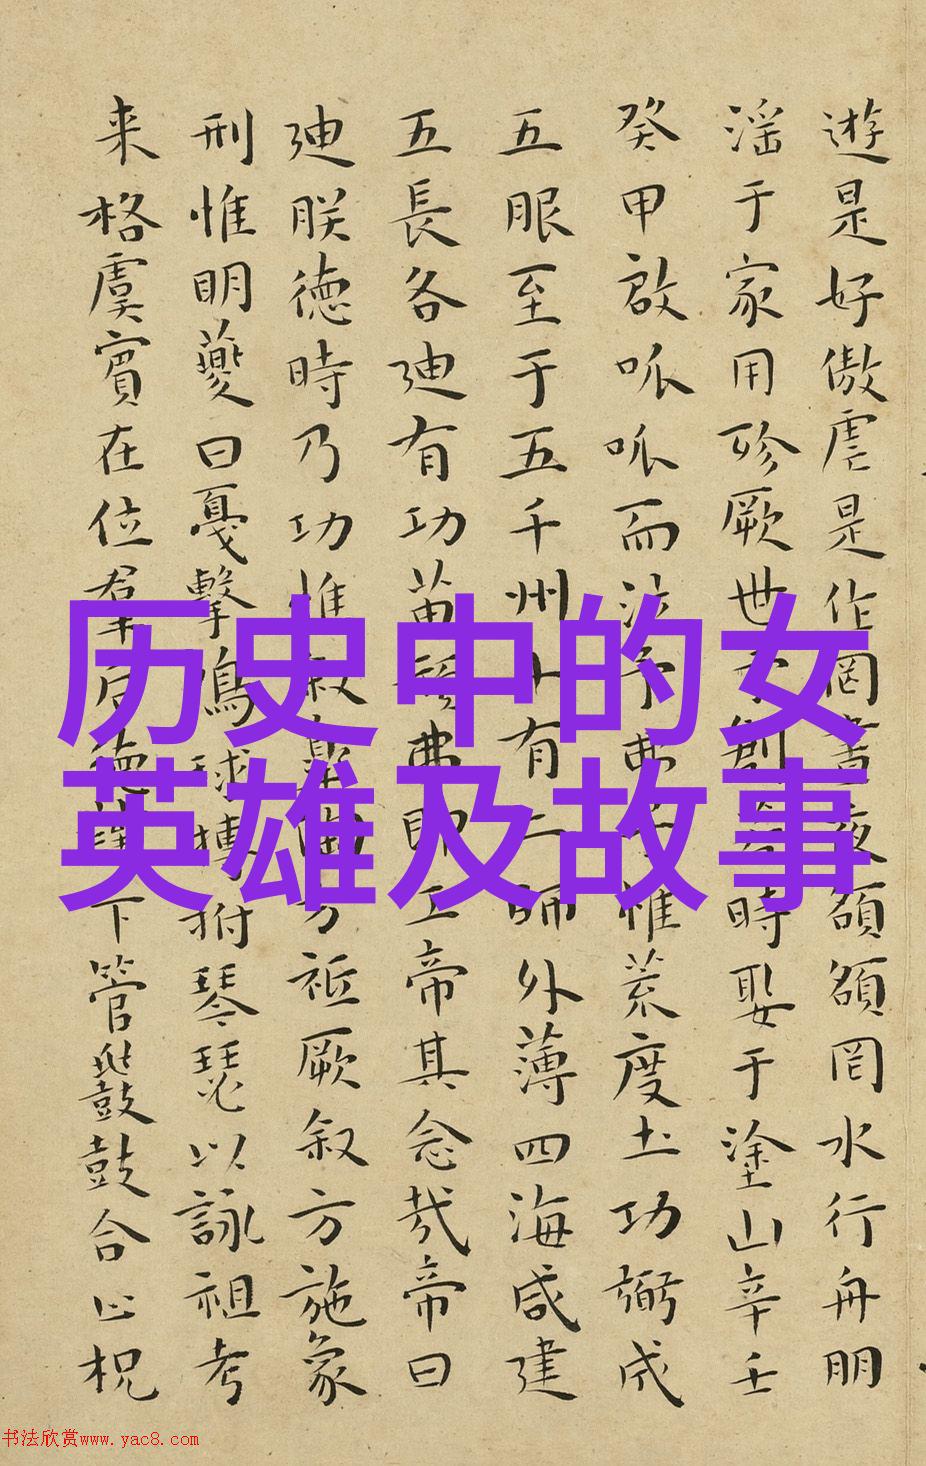 历史中的女
英雄及故事
遊是好傲虐是作罔晝夜頟頟罔水行舟朋
淫于家用殄厥世予創若時娶于塗山辛壬
癸甲啟呱呱而泣予弗子惟荒度土功弼成
五服至于五千州十有二師外薄四海咸建
五長各迪有功苗頑弗即工帝其念哉帝曰
迪朕德時乃功惟叙皋陶方祗厥叙方施象
刑惟明夔曰戛擊鳴球搏拊琴瑟以詠祖考
来格虞賓在位羣后德讓下管鼗鼓合止柷
书法欣赏www.yac8.com